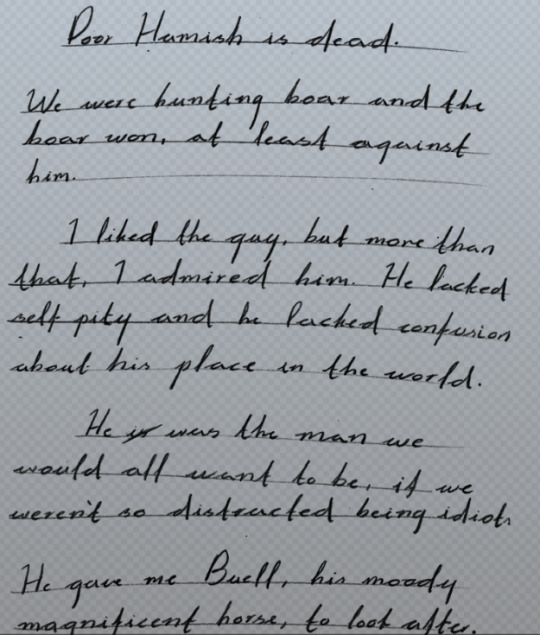 Poor Hamish is dead.
We were hunting boar and the
boar won, at least against
him.
I liked the guy, but more than
that, I admired him. He lacked
self pity and he lacked confusion
about his place in the world.
He is was the man we
would all want to be, if we
weren't so distracted being idiots
He gave me Buell, his moody
magnificent horse, to look after.